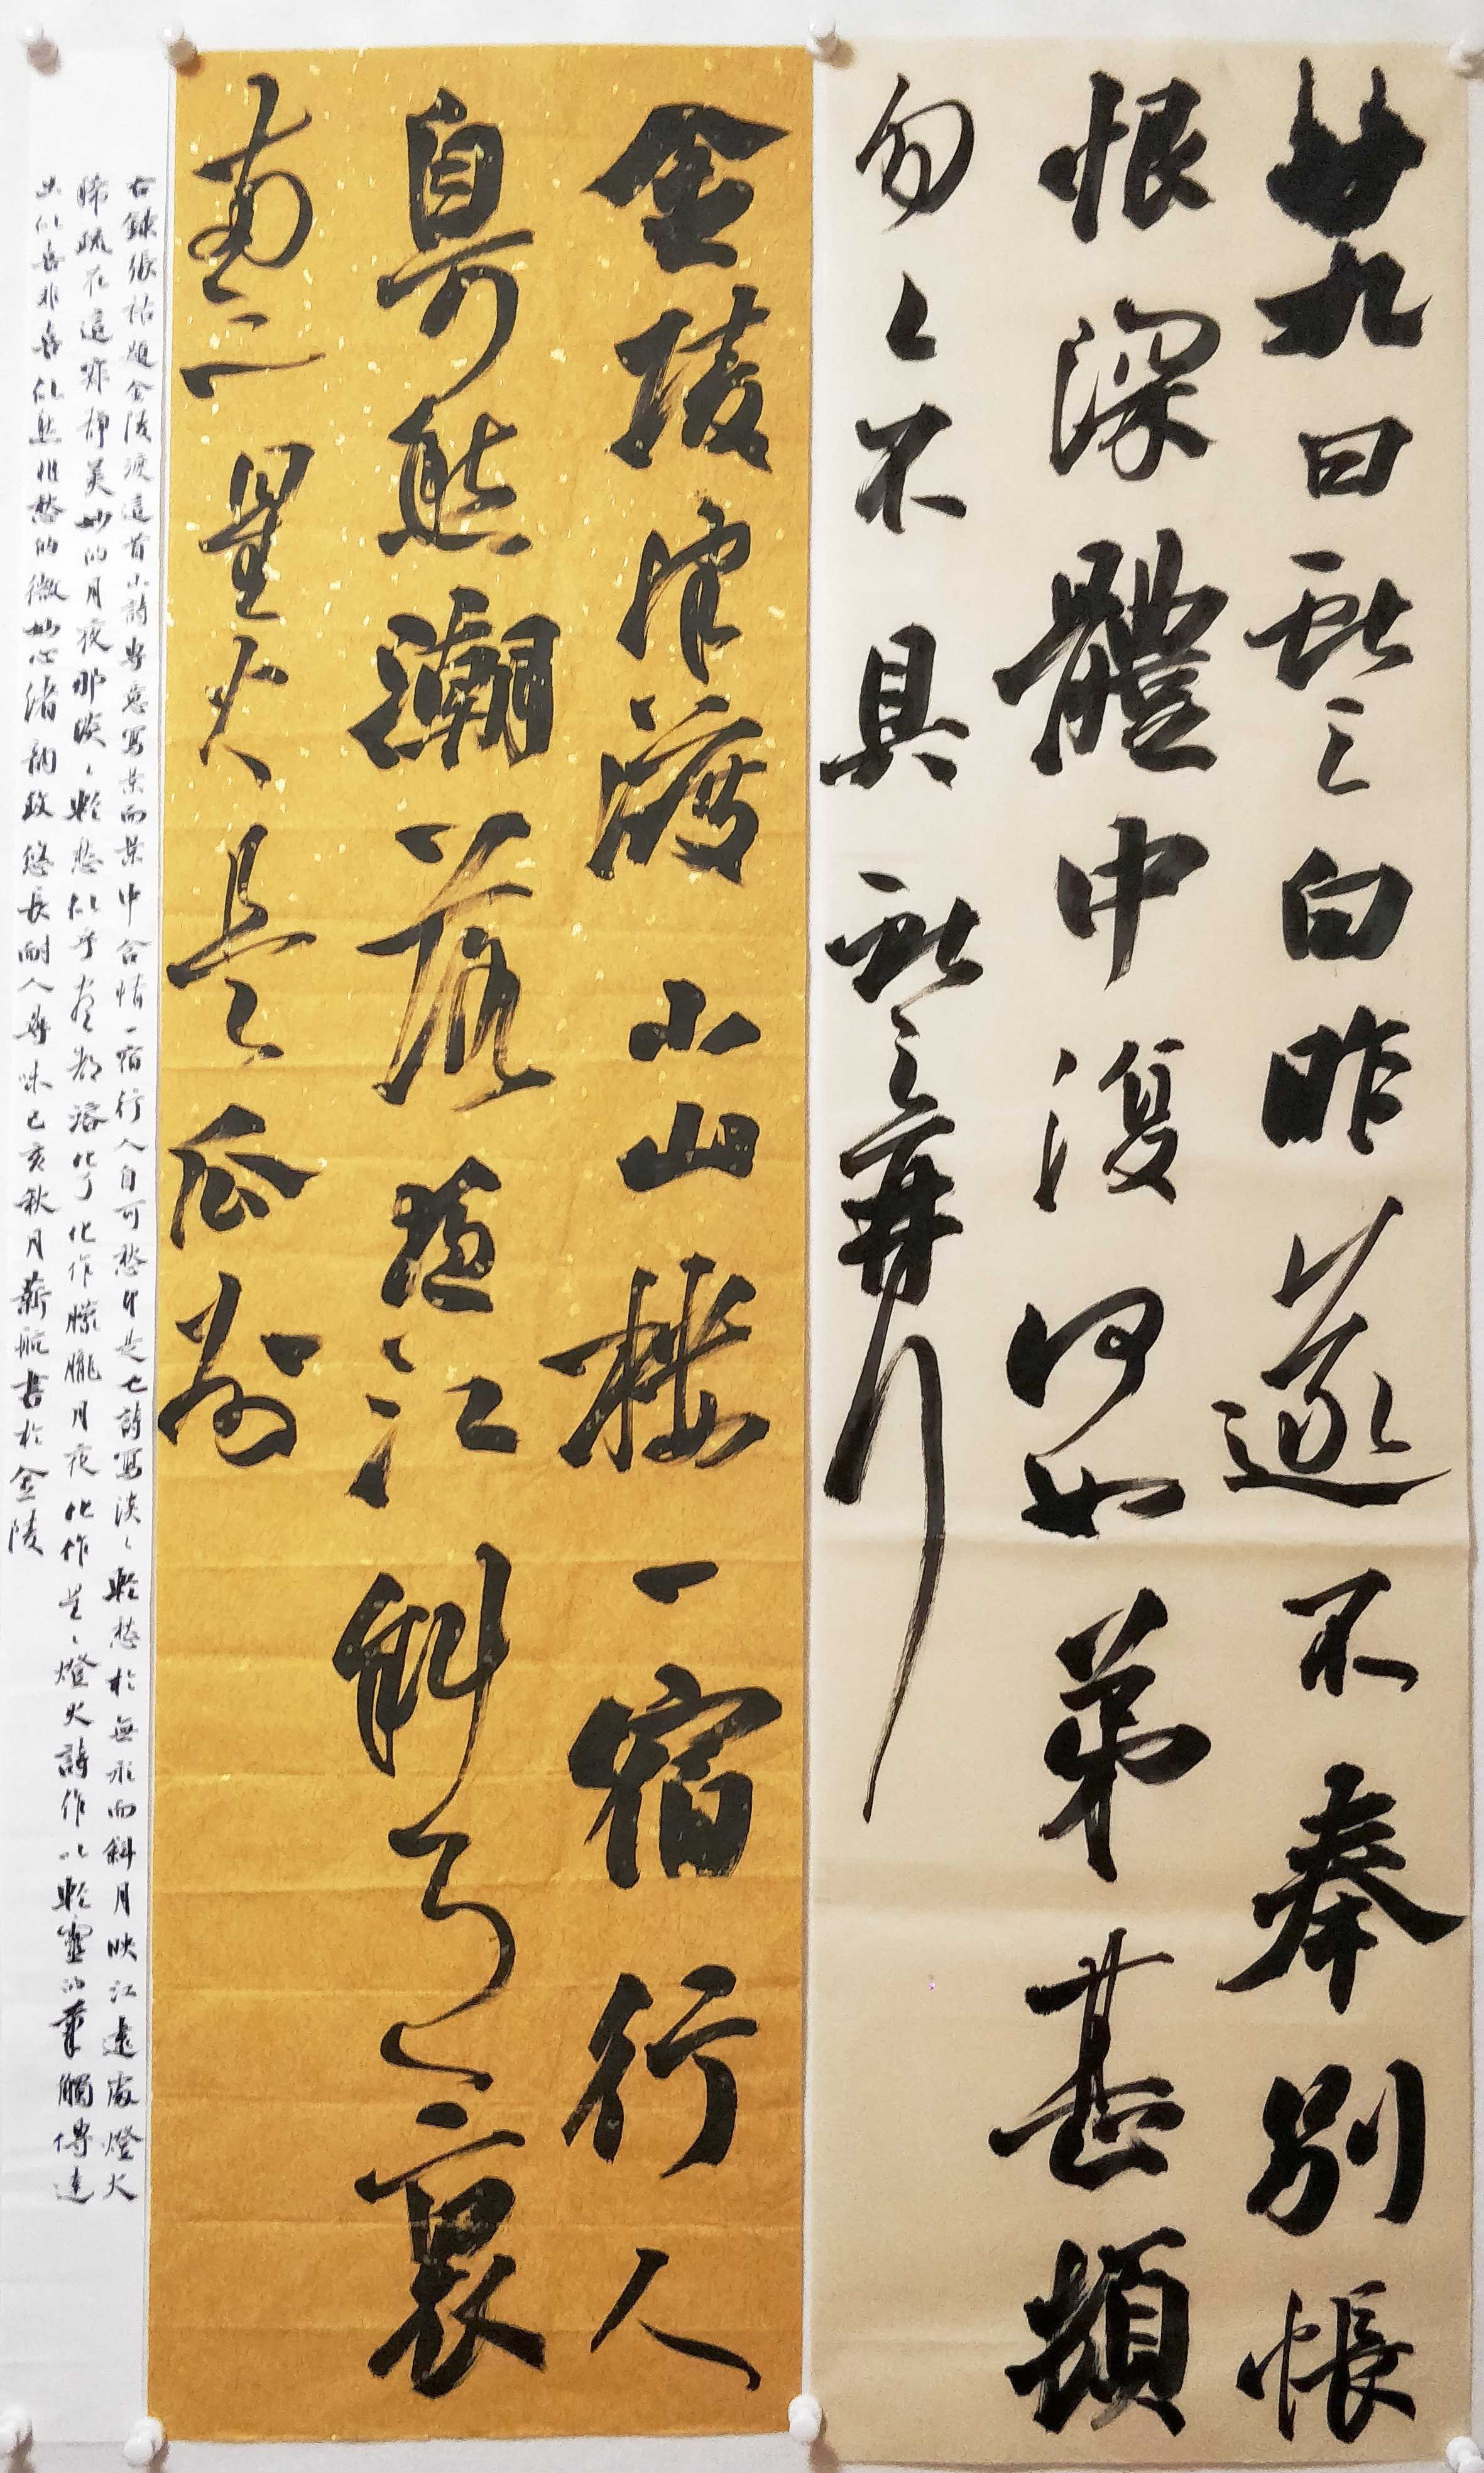 廿九日獻之白昨遂不奉別悵
恨深體中復何如弟甚頓
匆ゝ不具獻之再拜
金陵津渡小山樓一宿行人
自可愁潮落夜江斜月裏
兩三星火是瓜州
右錄張祜題金陵渡這首小詩專意寫景而景中含情一宿行人自可愁即是也詩寫淡ゝ輕愁於無形而斜月映江遠處燈火
稀疏在這寂靜美妙的月夜那淡ゝ輕愁似乎全都溶化了化作朦朧月夜化作星ゝ燈火詩作以輕靈的筆觸傳達
出似喜非喜似愁非愁的微妙心緒韵致悠長耐人尋味己亥秋月薪航書於金陵